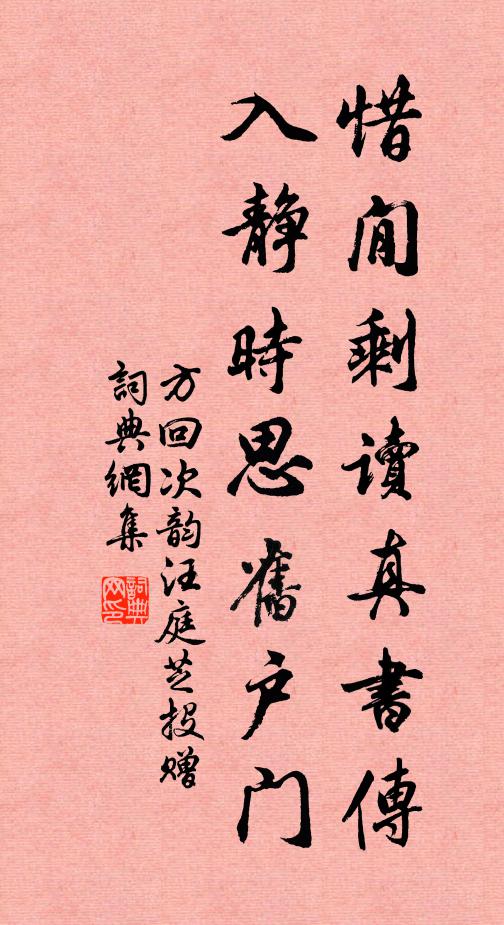 惜閒剩讀真書傳
入靜時思舊戶門
方回次韵汪庭芝投赠
詞典網集
詞典網印